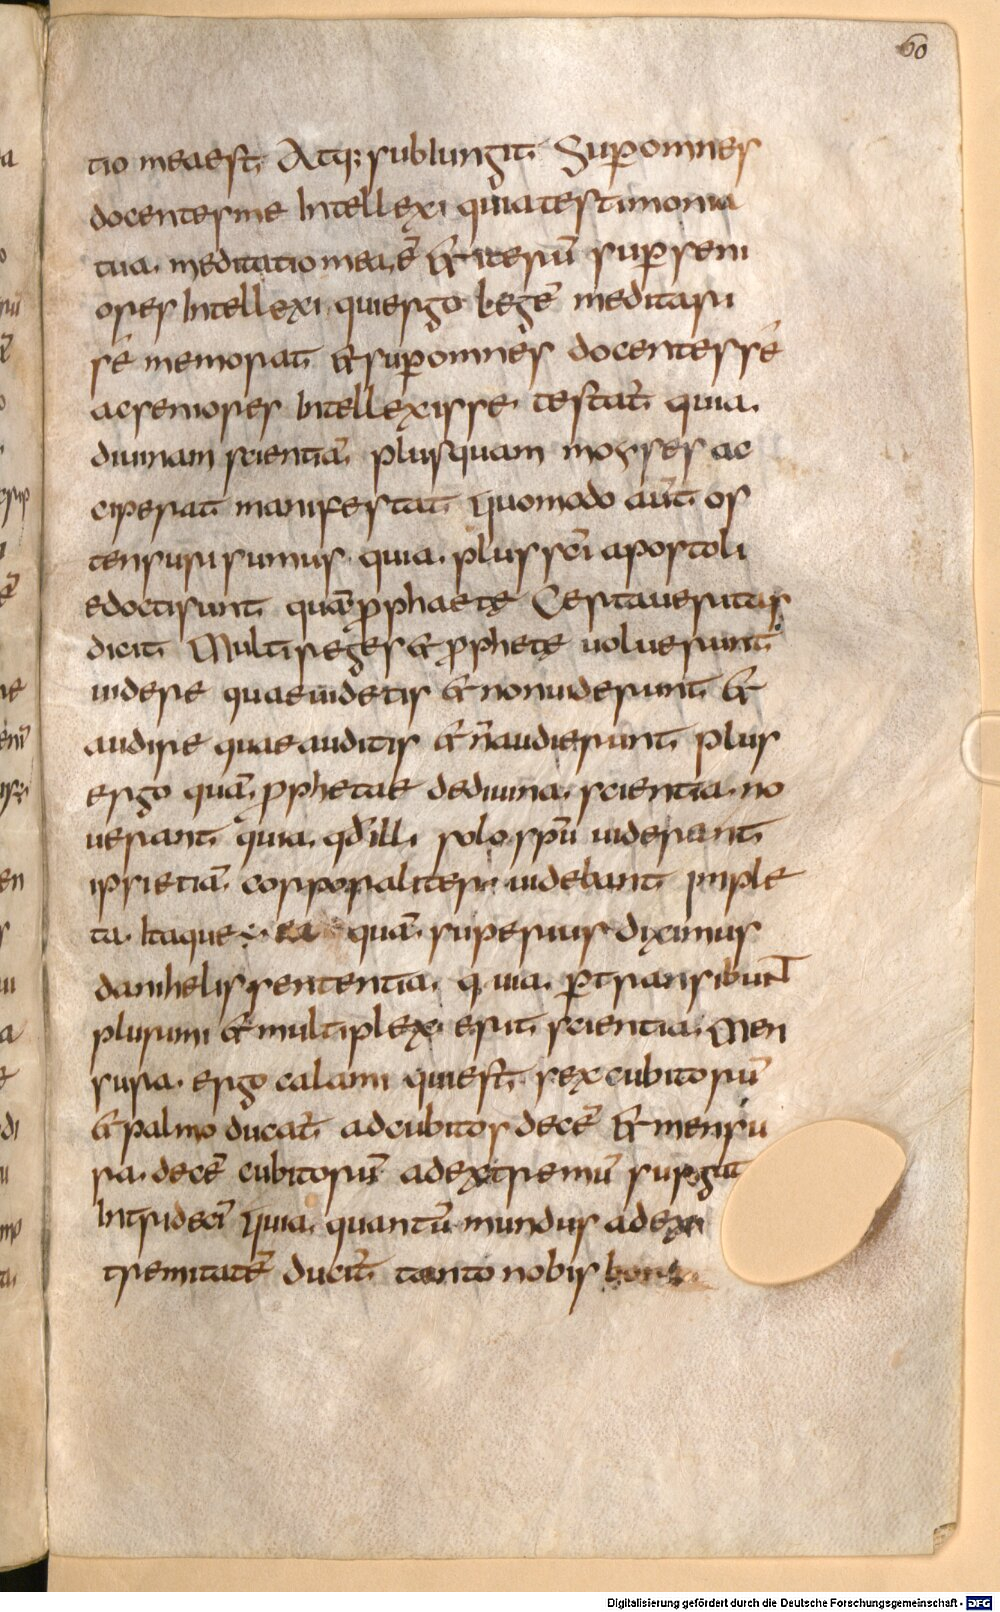 60
tio mea est; Atq; subiungit Sup omnes
docentes me Intellexi quia testimonia
tua. meditatio mea ē & iterū sup seni
ores Intellexi. qui ergo legē meditari
sē memorat & sup omnes docentes sē
ac seniores Intellexisse. testat̄ quia.
diuinam scientiā plus quam moyses ac
ceperat manifestat Quomodo aūt os
tensuri sumus. quia. plus scī apostoli
edocti sunt quā prophaetę Certa ueritas
dicit Multi reges & prophetę uoluerunt
uidere quae uidetis & non uiderunt &
audire quae auditis & n̄ audierunt plus
ergo quā prophetae de diuina. scientia. no
uerant quia. qđ illi solo spū uiderant
ipsi etiā corporaliter. uidebant imple
ta. Itaque ea quā superius diximus
danihelis sententia. quia. ptransibunt
plurimi & multiplex erit scientia. Men
sura. ergo calami qui est sex cubitorū
& palmo ducat̄ ad cubitos decē & mensu
ra. decē cubitorū ad extremū surgit
Intrīdeci Quia. quantū mundus ad ex
tremitatē ducit̄ tanto nobis
Digitalisierung gefördert durch die Deutsche Forschungsgemeinschaft - DFG